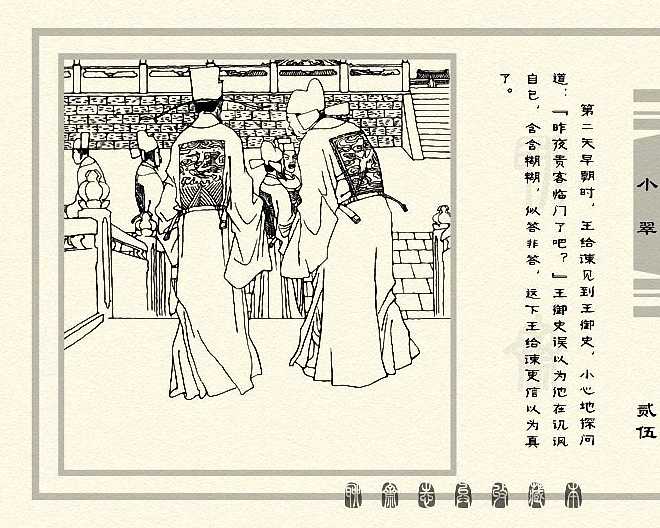 第二天早朝时，王给谏见到王御史，小心地探问
道：“昨夜贵客临门了吧？”王御史误以为他在讥讽
自己，含含糊糊，似答非答，这下王给谏更信以为真
了。
小翠
贰伍
聊斋志异收藏本